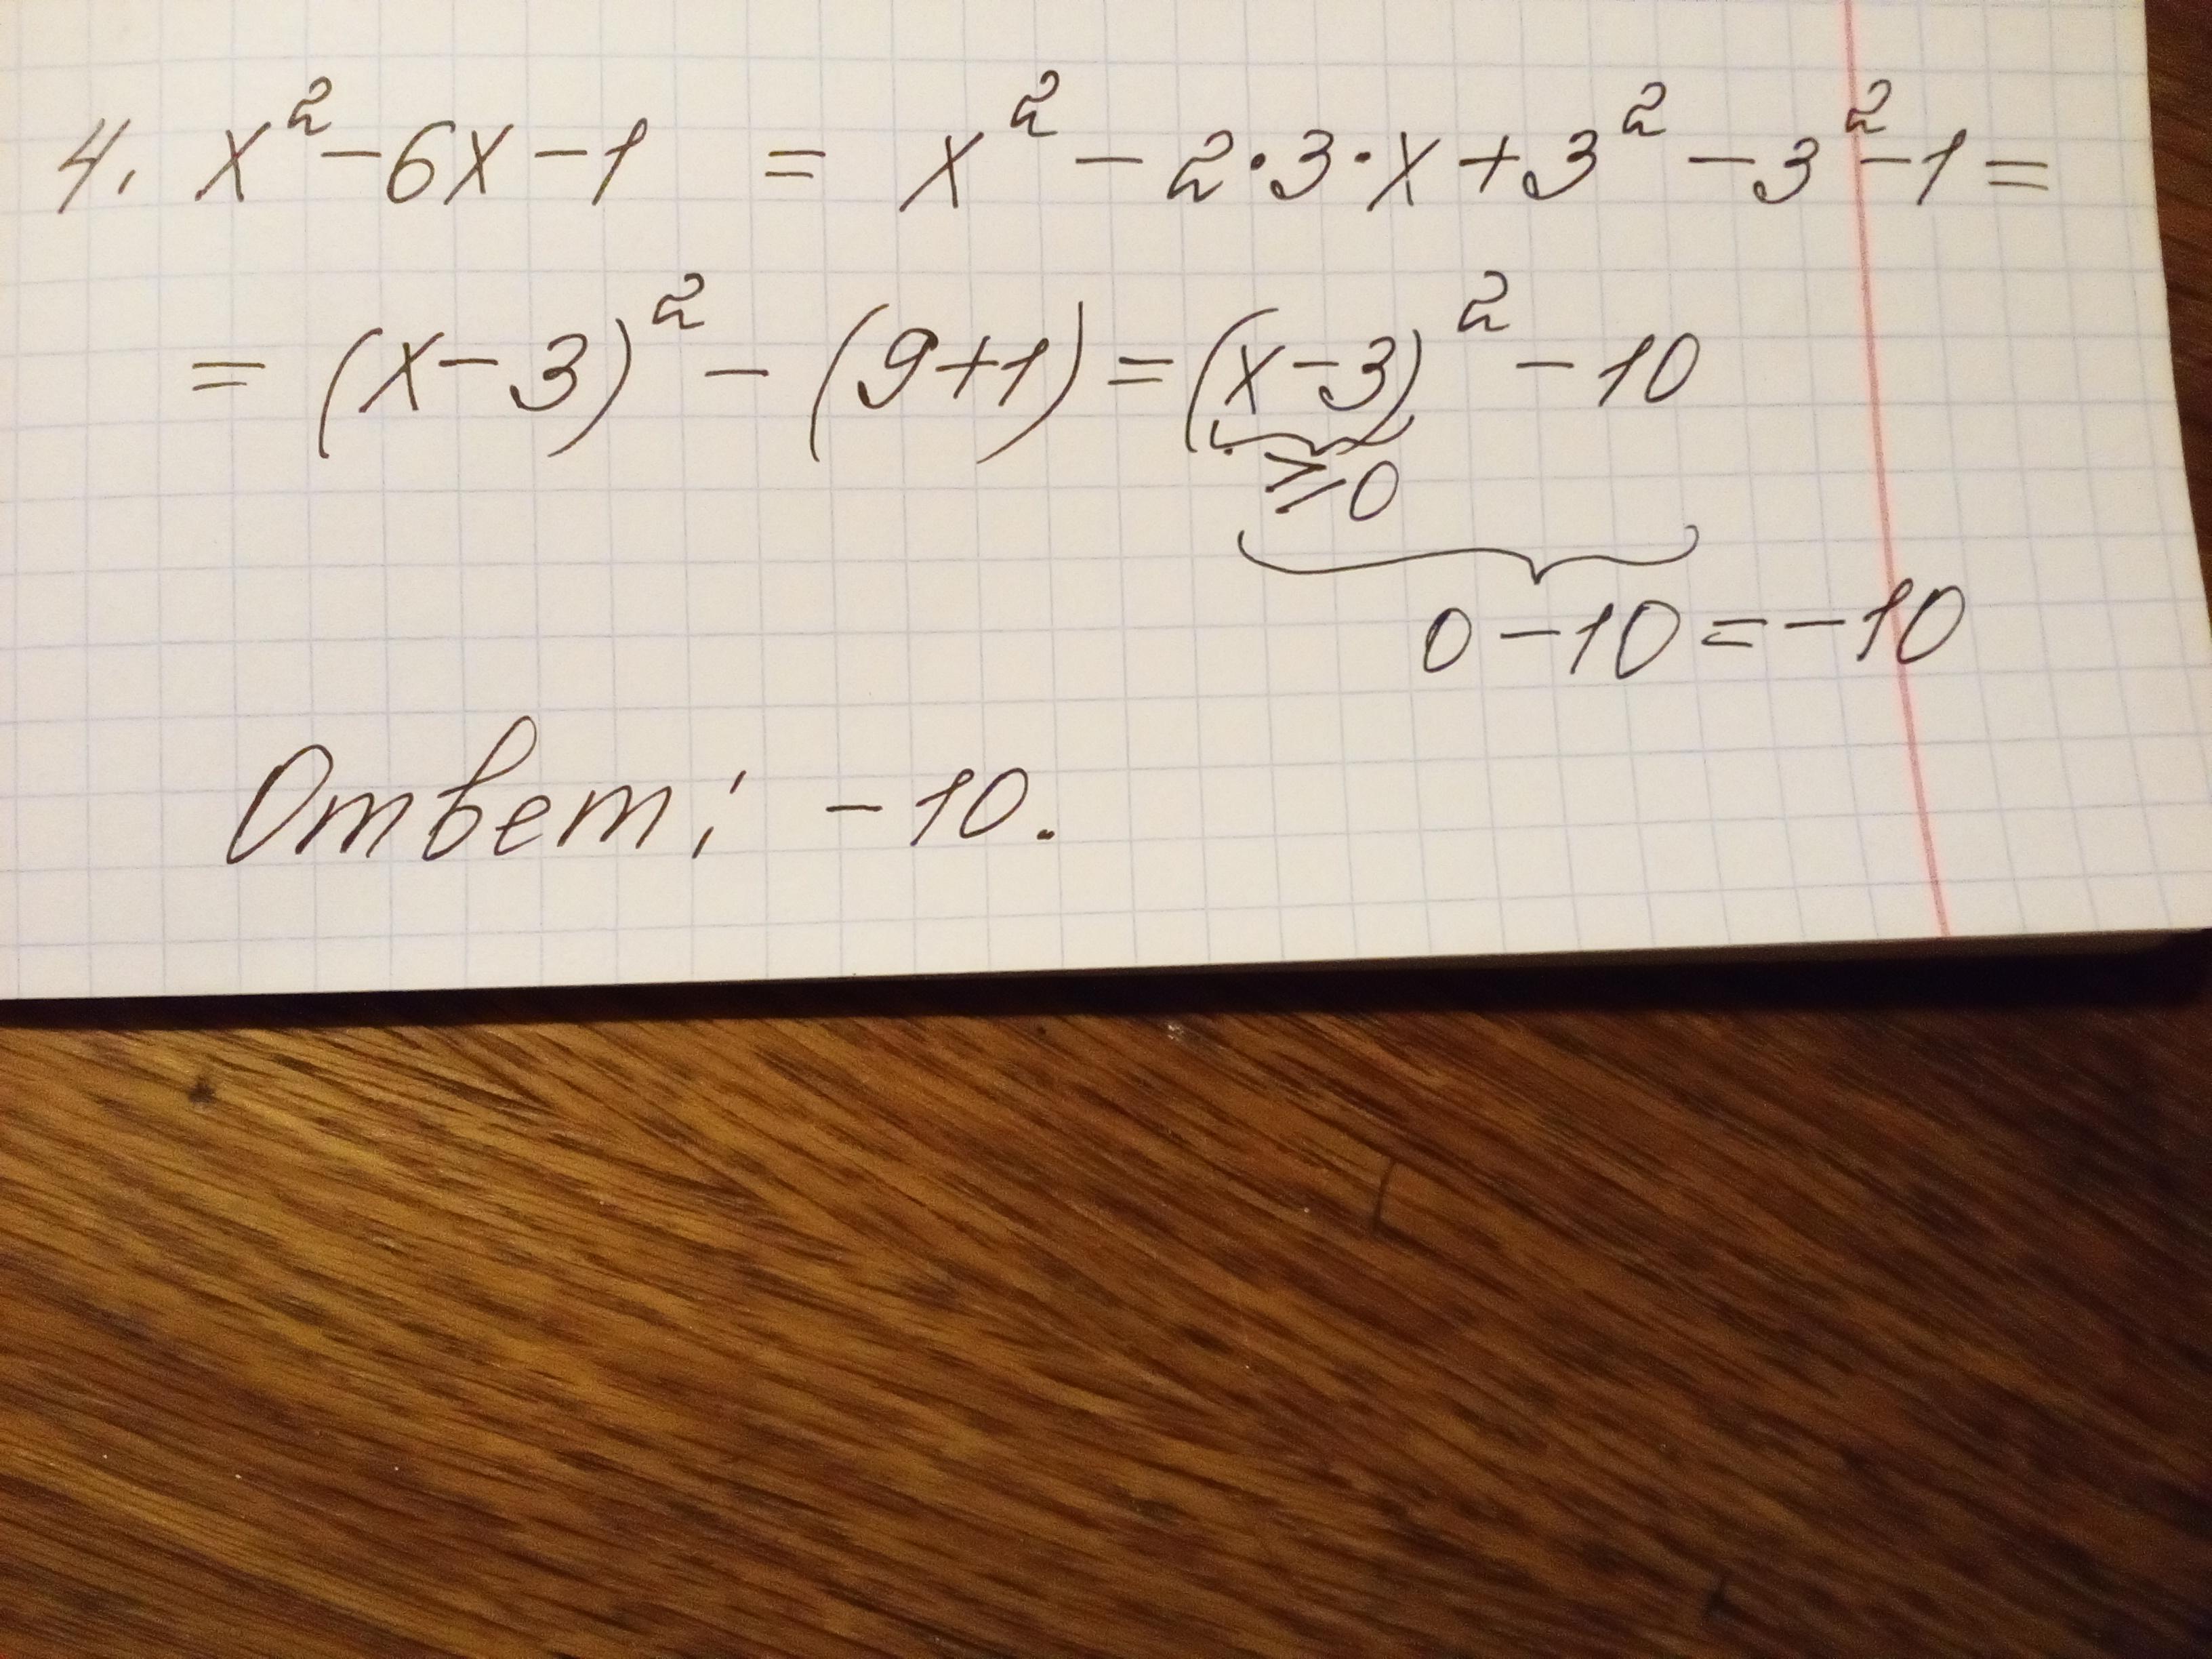 4. x² - 6x - 1 = x² - 2·3·x + 3² - 3² - 1 =
= (x - 3)² - (9 + 1) = (x - 3)² - 10
≥ 0
0 - 10 = -10
Ответ: -10.